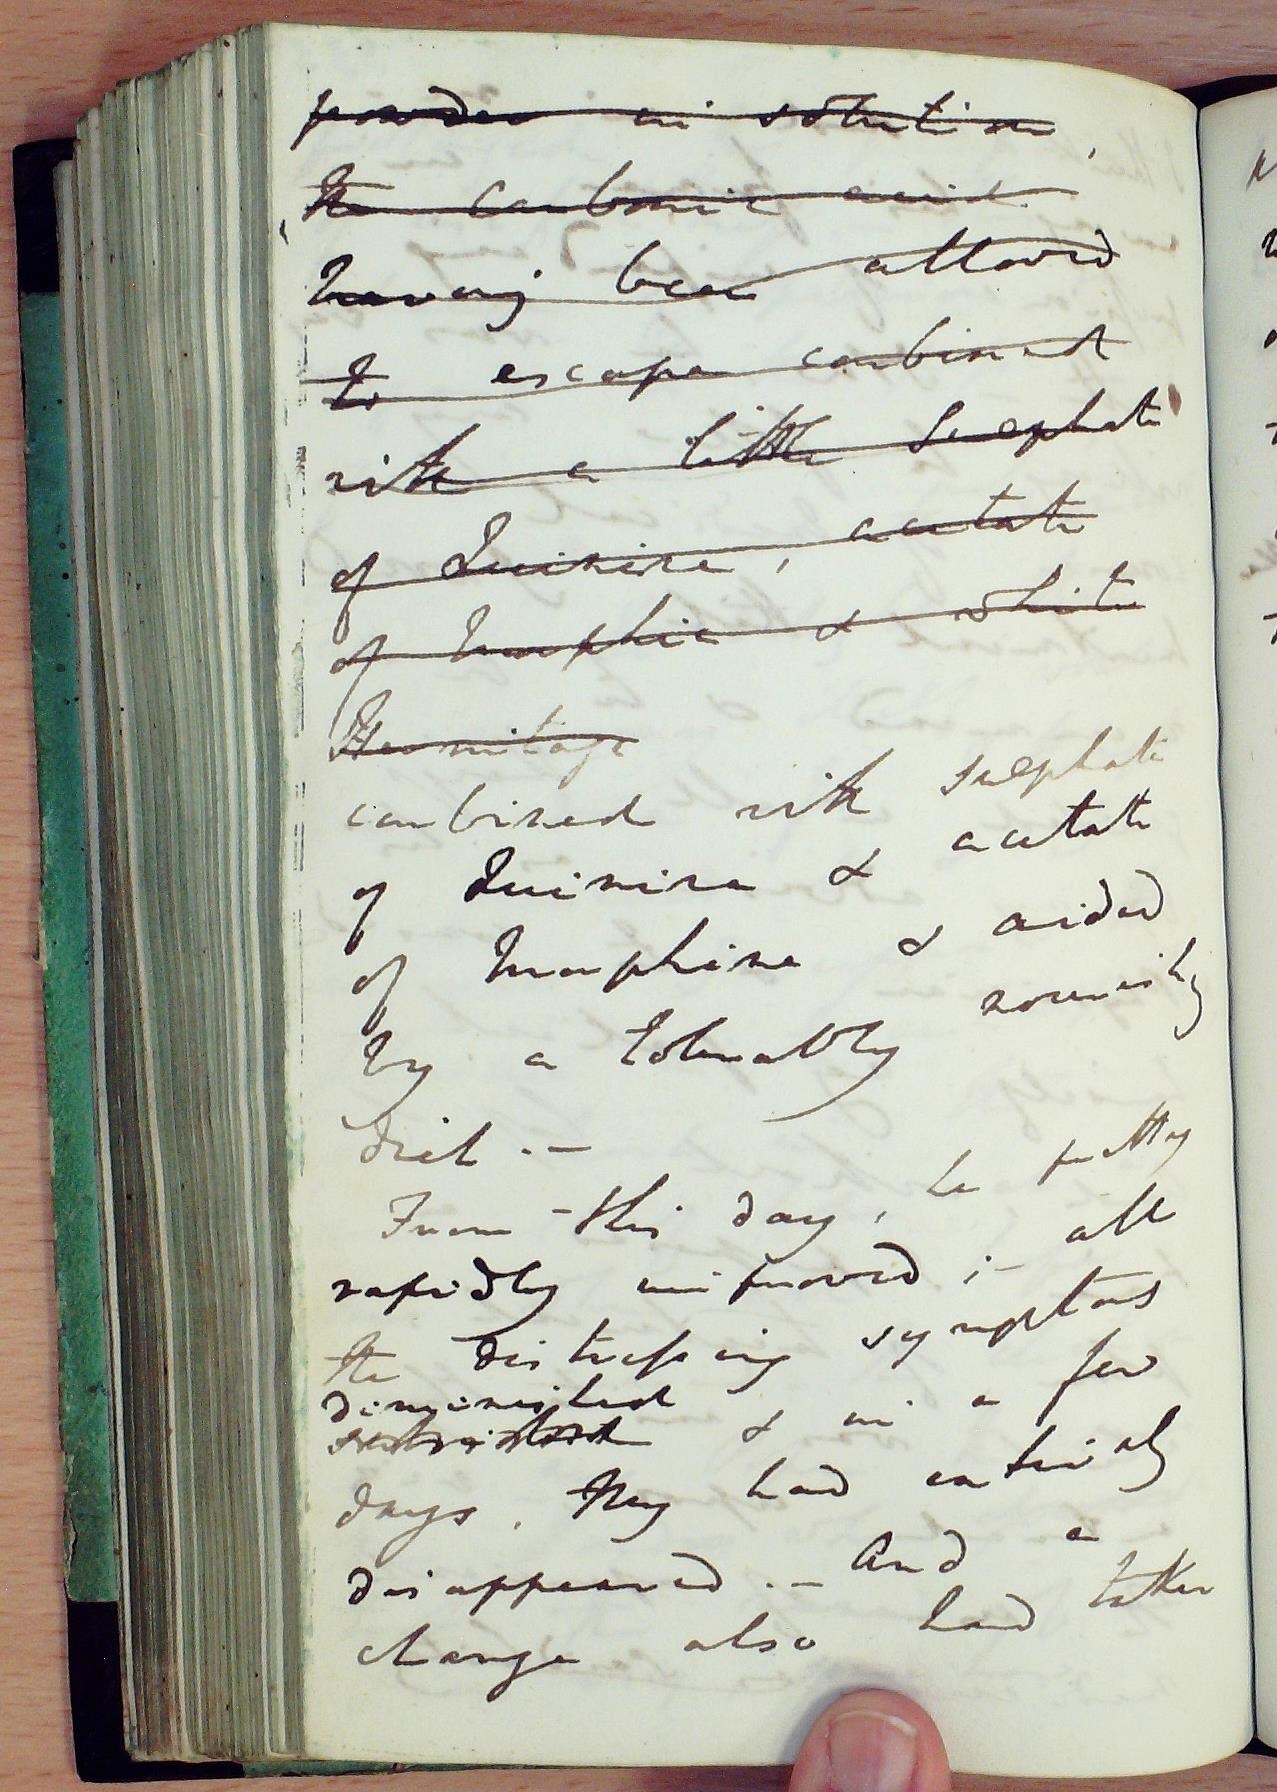 powder in solution,
the carbonic acid
having been allowed
to escape combined
with a little Sulphate
of Quinine, acetate
of Morphia & white
Hermitage
combined with sulphate
of Quinine & acetate
of Morphine & aided
by a tolerably nourishg
diet. —
From this day, he pretty
rapidly improved; — all
the distressing symptoms
diminished
& in a few
days, they had entirely
disappeared. — And a
change also had taken